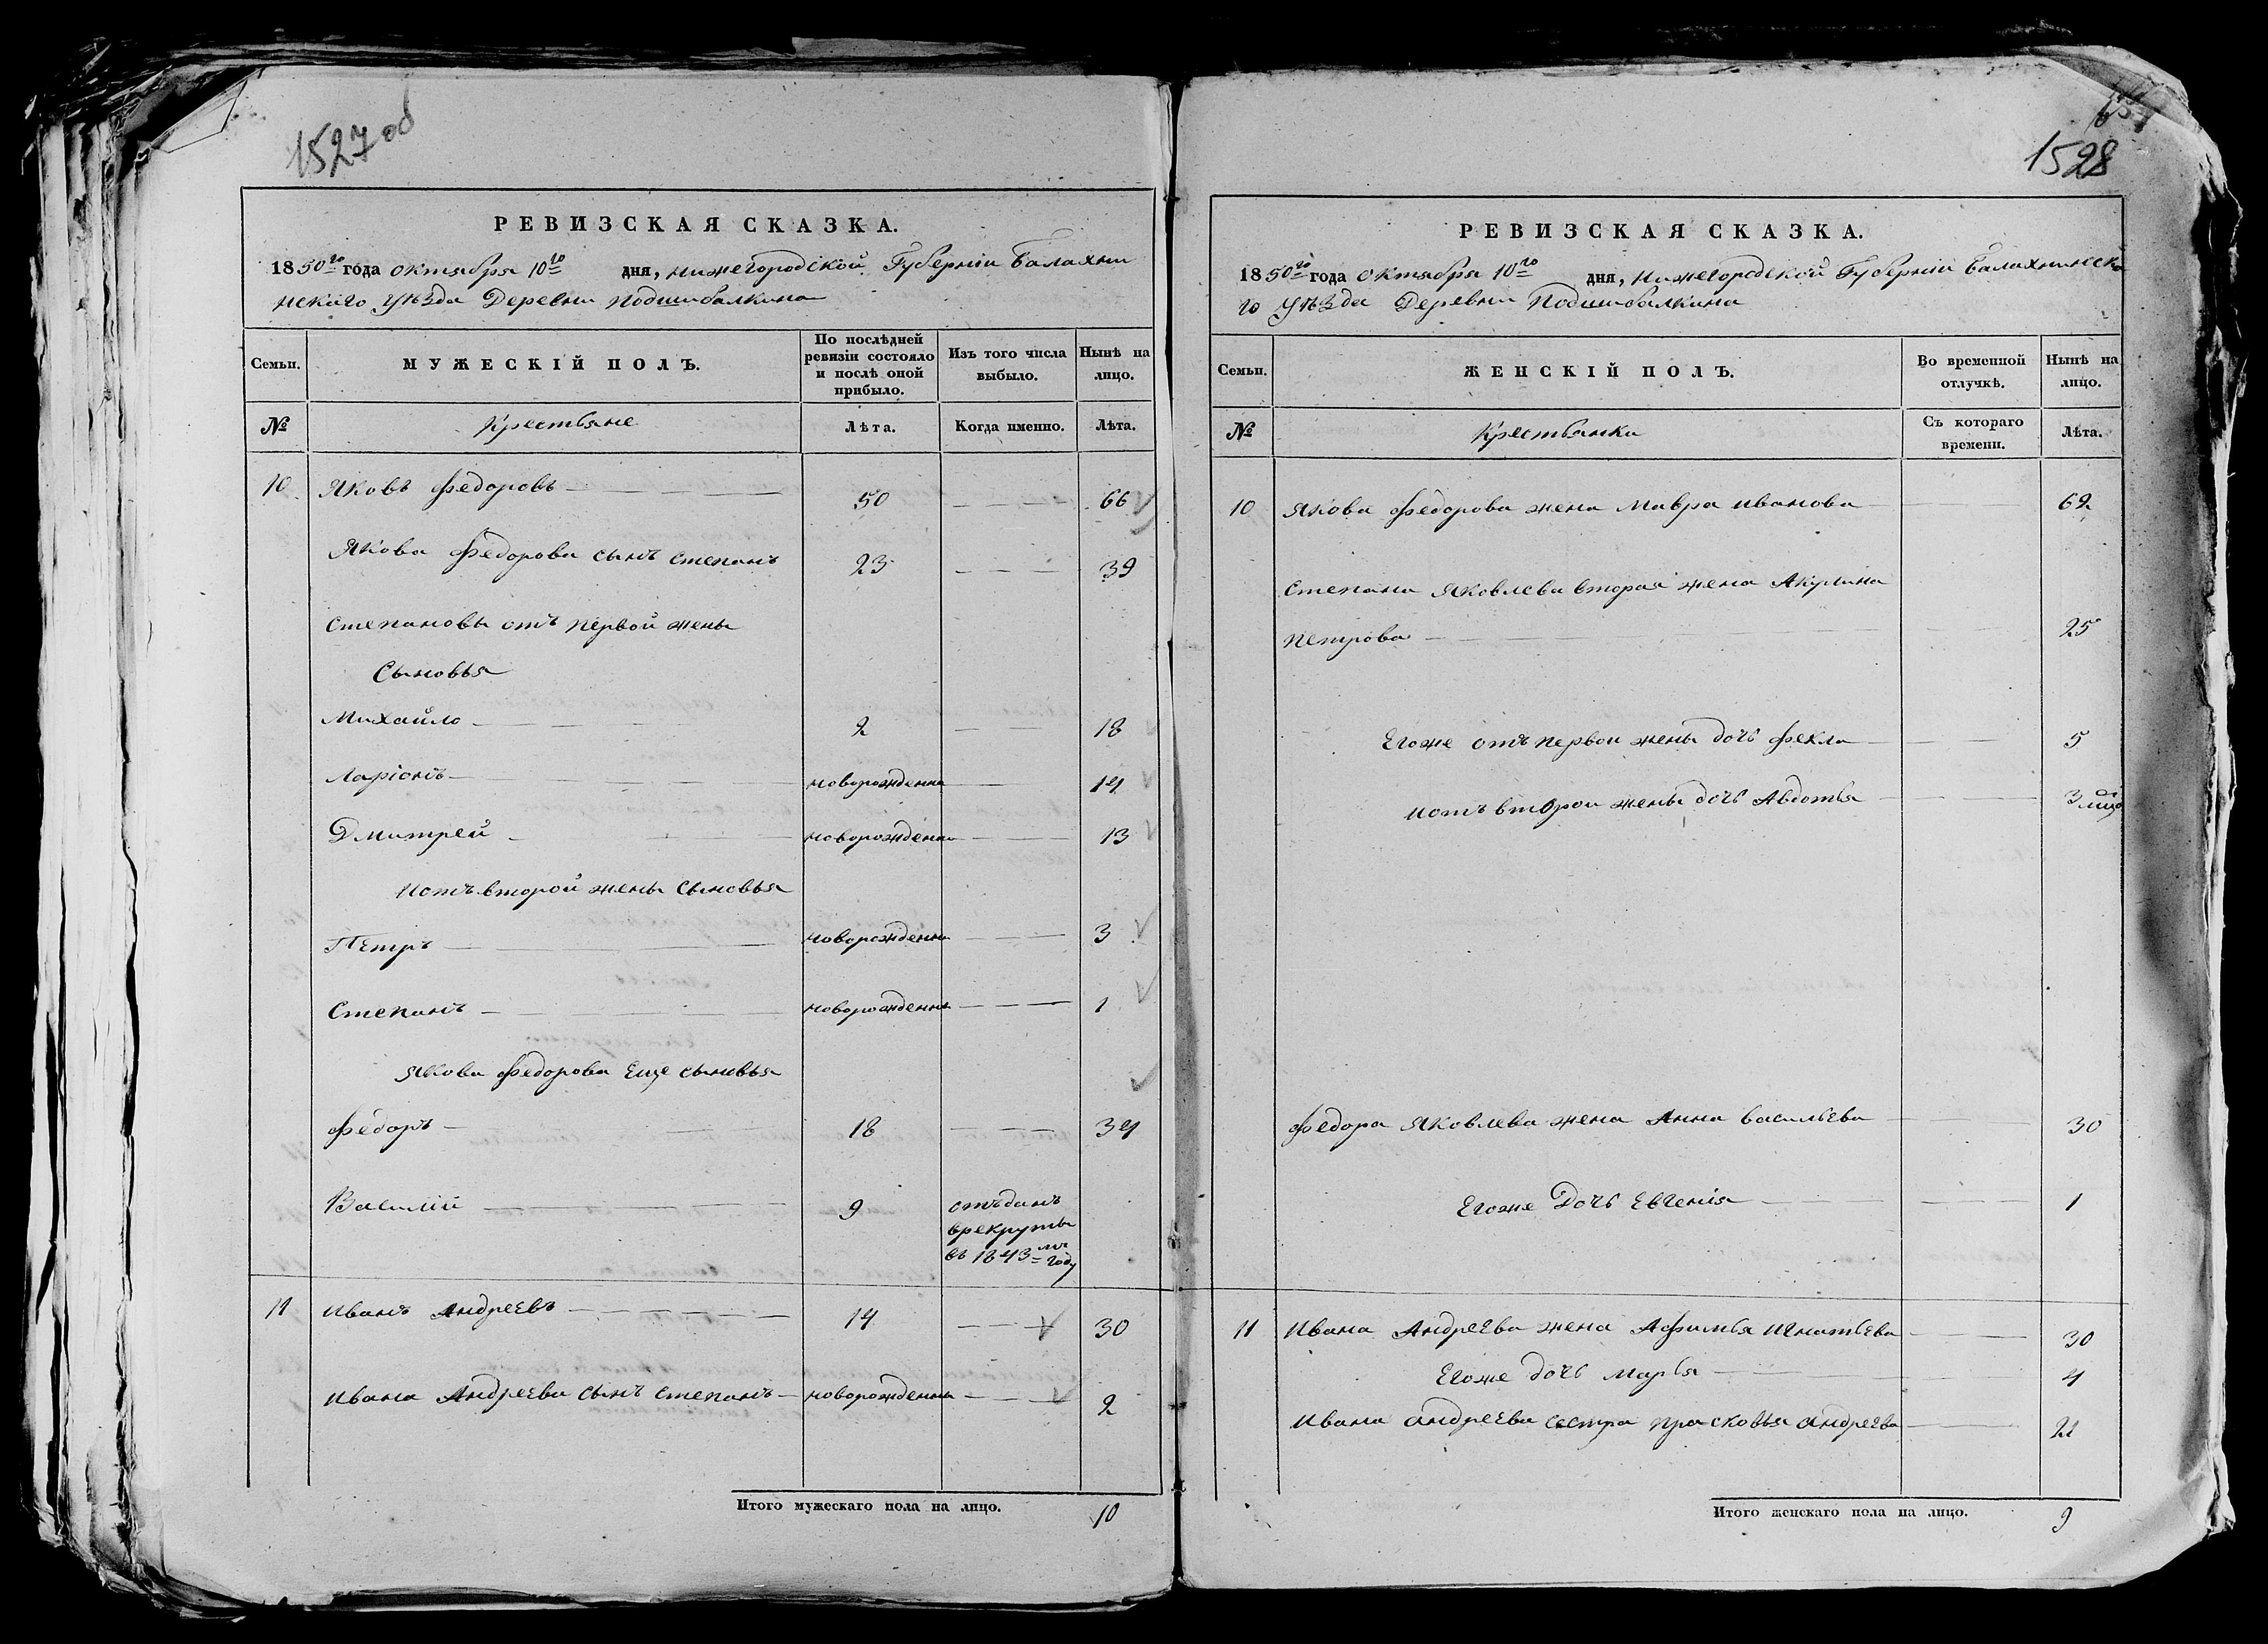 1527 об
РЕВИЗСКАЯ СКАЗКА.
1850го года октября 10го дня, нижегородской Губерніи Балахни
нскаго уѣзда Деревни Подшибалкина
Семьи. МУЖЕСКІЙ ПОЛЪ. По послѣдней ревизіи состояло и послѣ оной прибыло. Изъ того числа выбыло. Нынѣ на лицо.
№ Крестьяне Лѣта. Когда именно. Лѣта.
10 Яковъ Федоровъ 50 66
Якова Федорова сынъ степанъ 23 39
степановы отъ первой жены
Сыновья
Михайло 2 18
Ларіонъ новорожденны 14
Дмитрей новорожденны 13
иотъ второй жены сыновья
Петръ новорожденны 3
степанъ новорожденны 1
Якова Федорова Еще сыновья
Федоръ 18 34
Василій 9 отъданъ
врекруты
въ 1843мъ году
11 иванъ Андреевъ 14 30
ивана Андреева сынъ степанъ новорожденны 2
Итого мужескаго пола на лицо. 10
1528
РЕВИЗСКАЯ СКАЗКА.
1850го года октября 10го дня, нижегородской Губерніи Балахнинска
го уѣзда Деревни Подшибалкина
Семьи. ЖЕНСКІЙ ПОЛЪ. Во временной отлучкѣ. Нынѣ на лицо.
№ Крестьянки Съ котораго времени. Лѣта.
10 Якова Федорова жена Мавра иванова 62
степана Яковлева вторая жена Акулина
петрова 25
Егоже отъ первои жены дочь Фекла 5
иотъ второи жены дочь Авдотья 3
Федора Яковлева жена Анна васильева 30
Егоже Дочь Евгенія 1
11 ивана Андреева жена Афимья игнатьева 30
Егоже дочь Марья 4
ивана андреева сестра прасковья андреева 21
Итого женскаго пола на лицо. 9